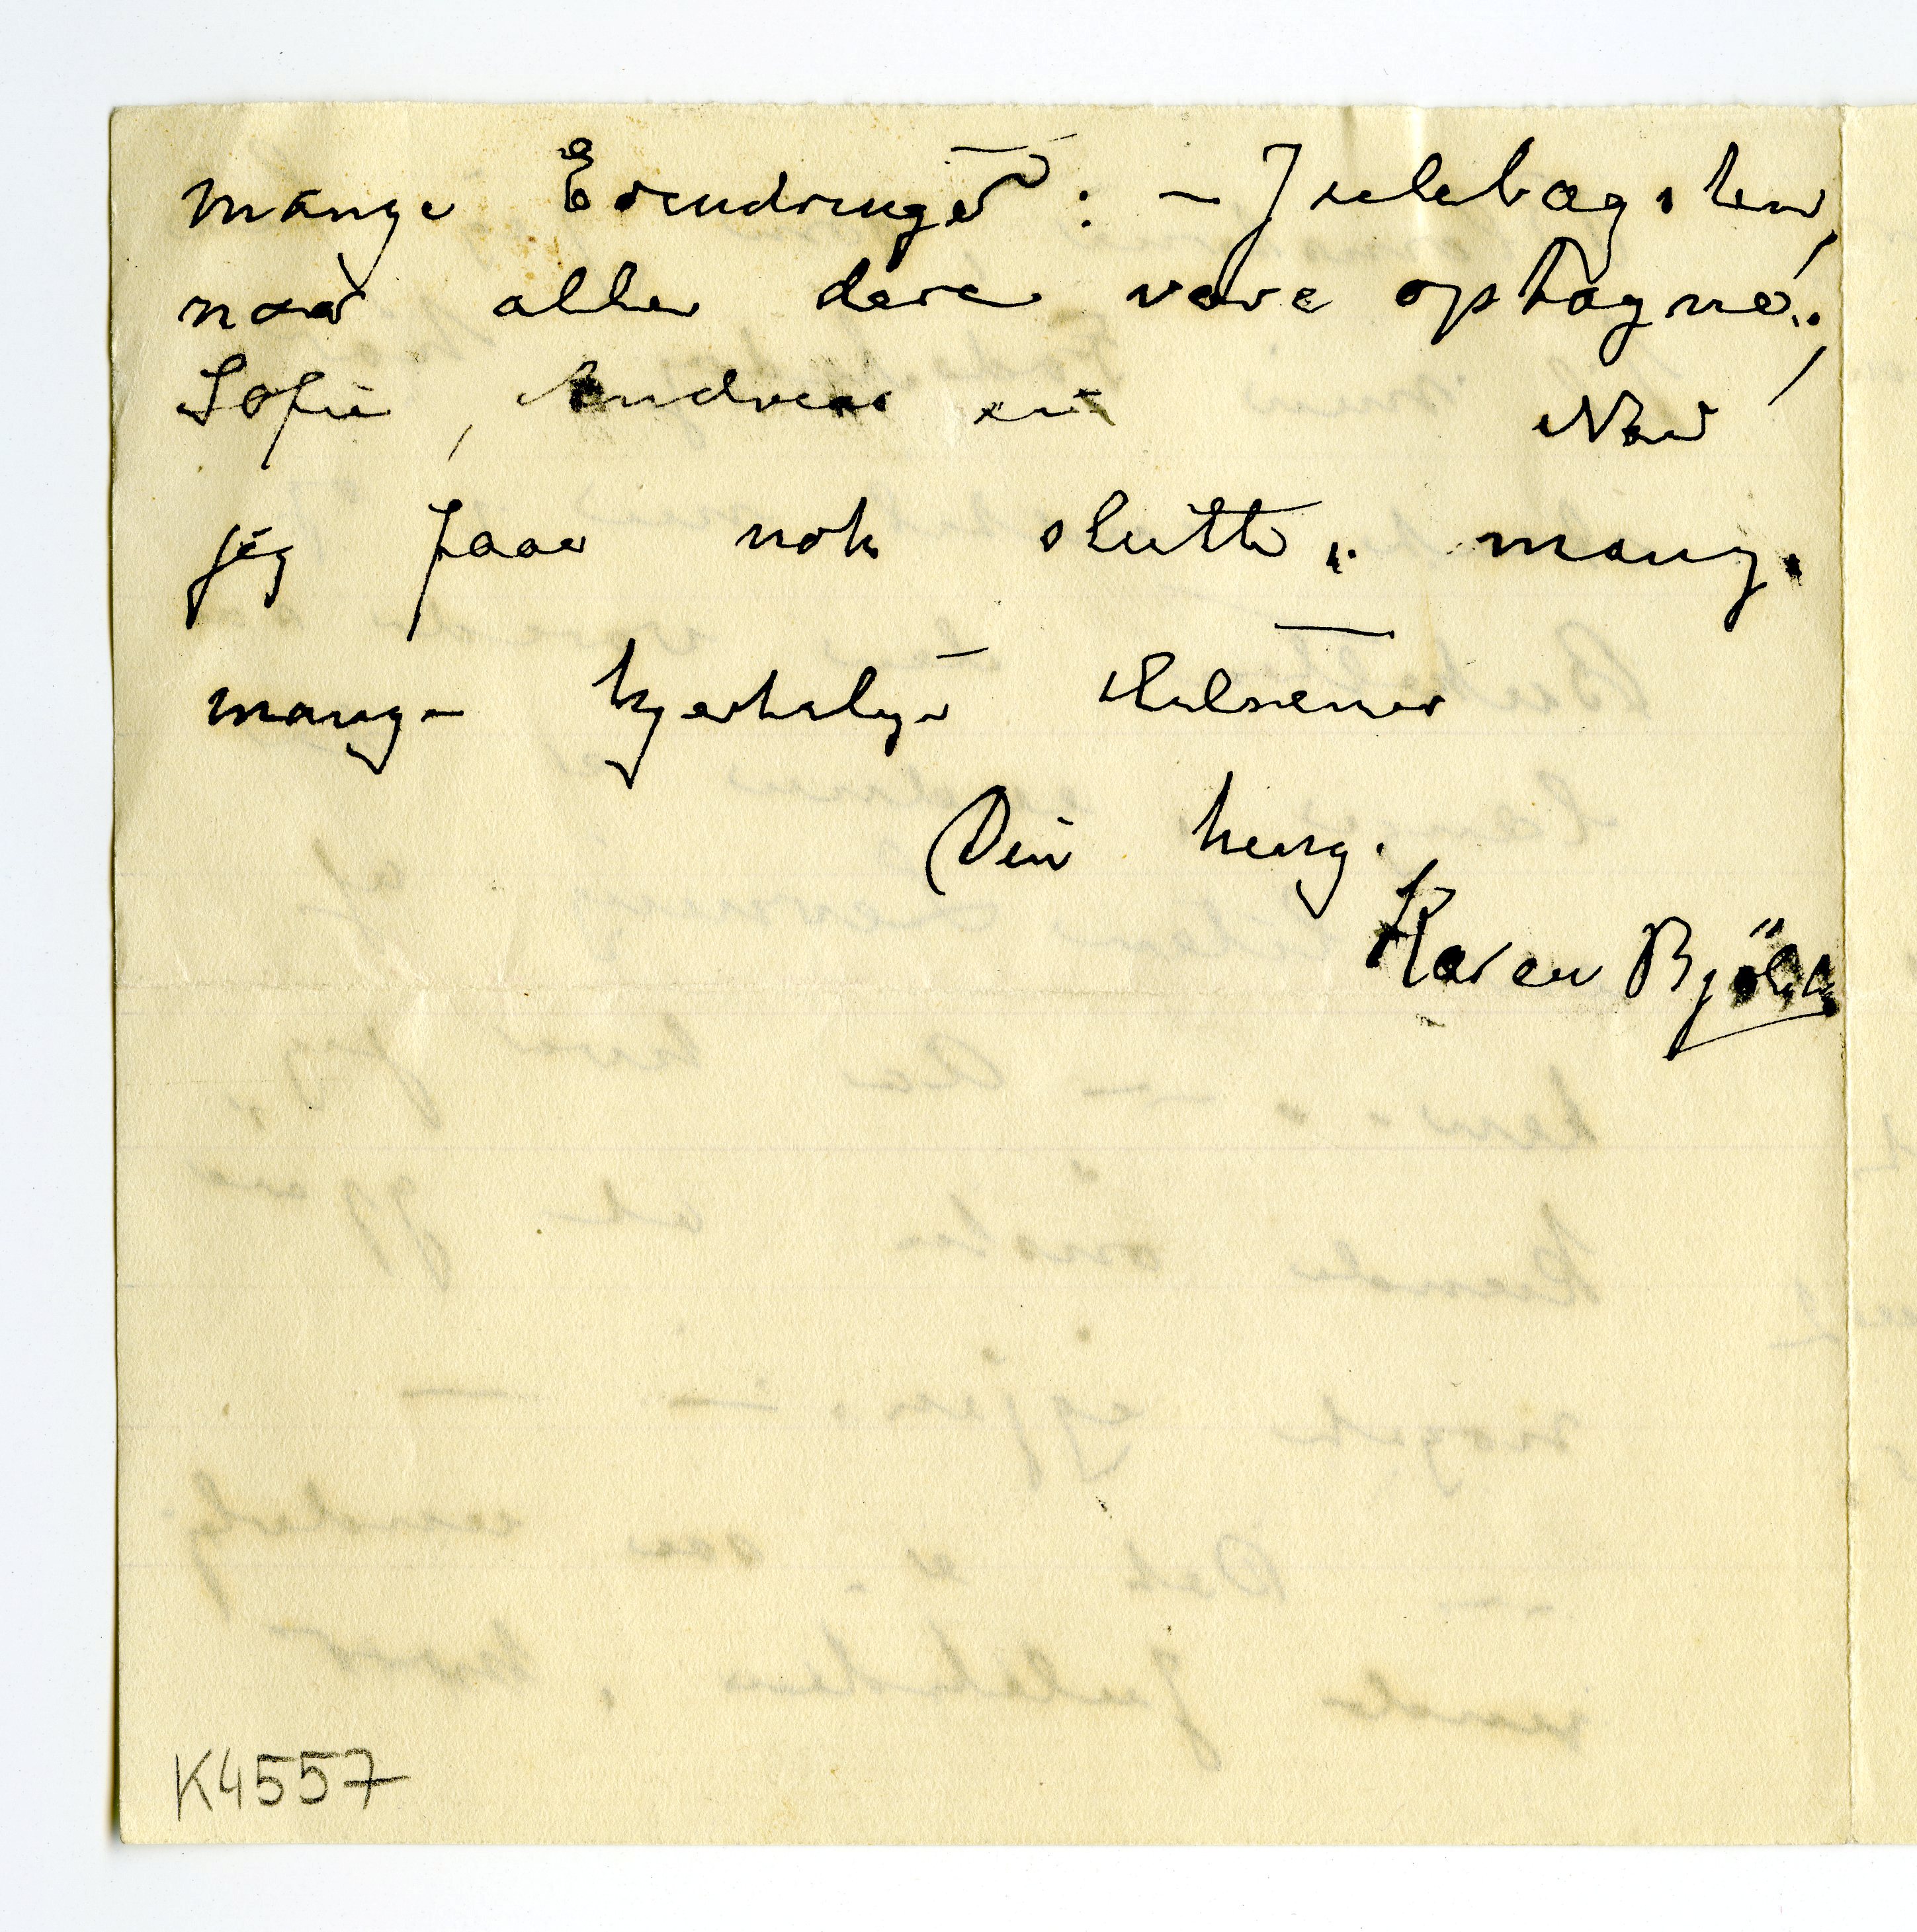 mange Erindringer: – Julebagsten,
naar alle dere vare optagne..
Sofie, Andreas en Nar
jeg faar nok slutte.. mange
mange hjertelige Hilsener
Din heng.
Karen Bjølstad
K4557